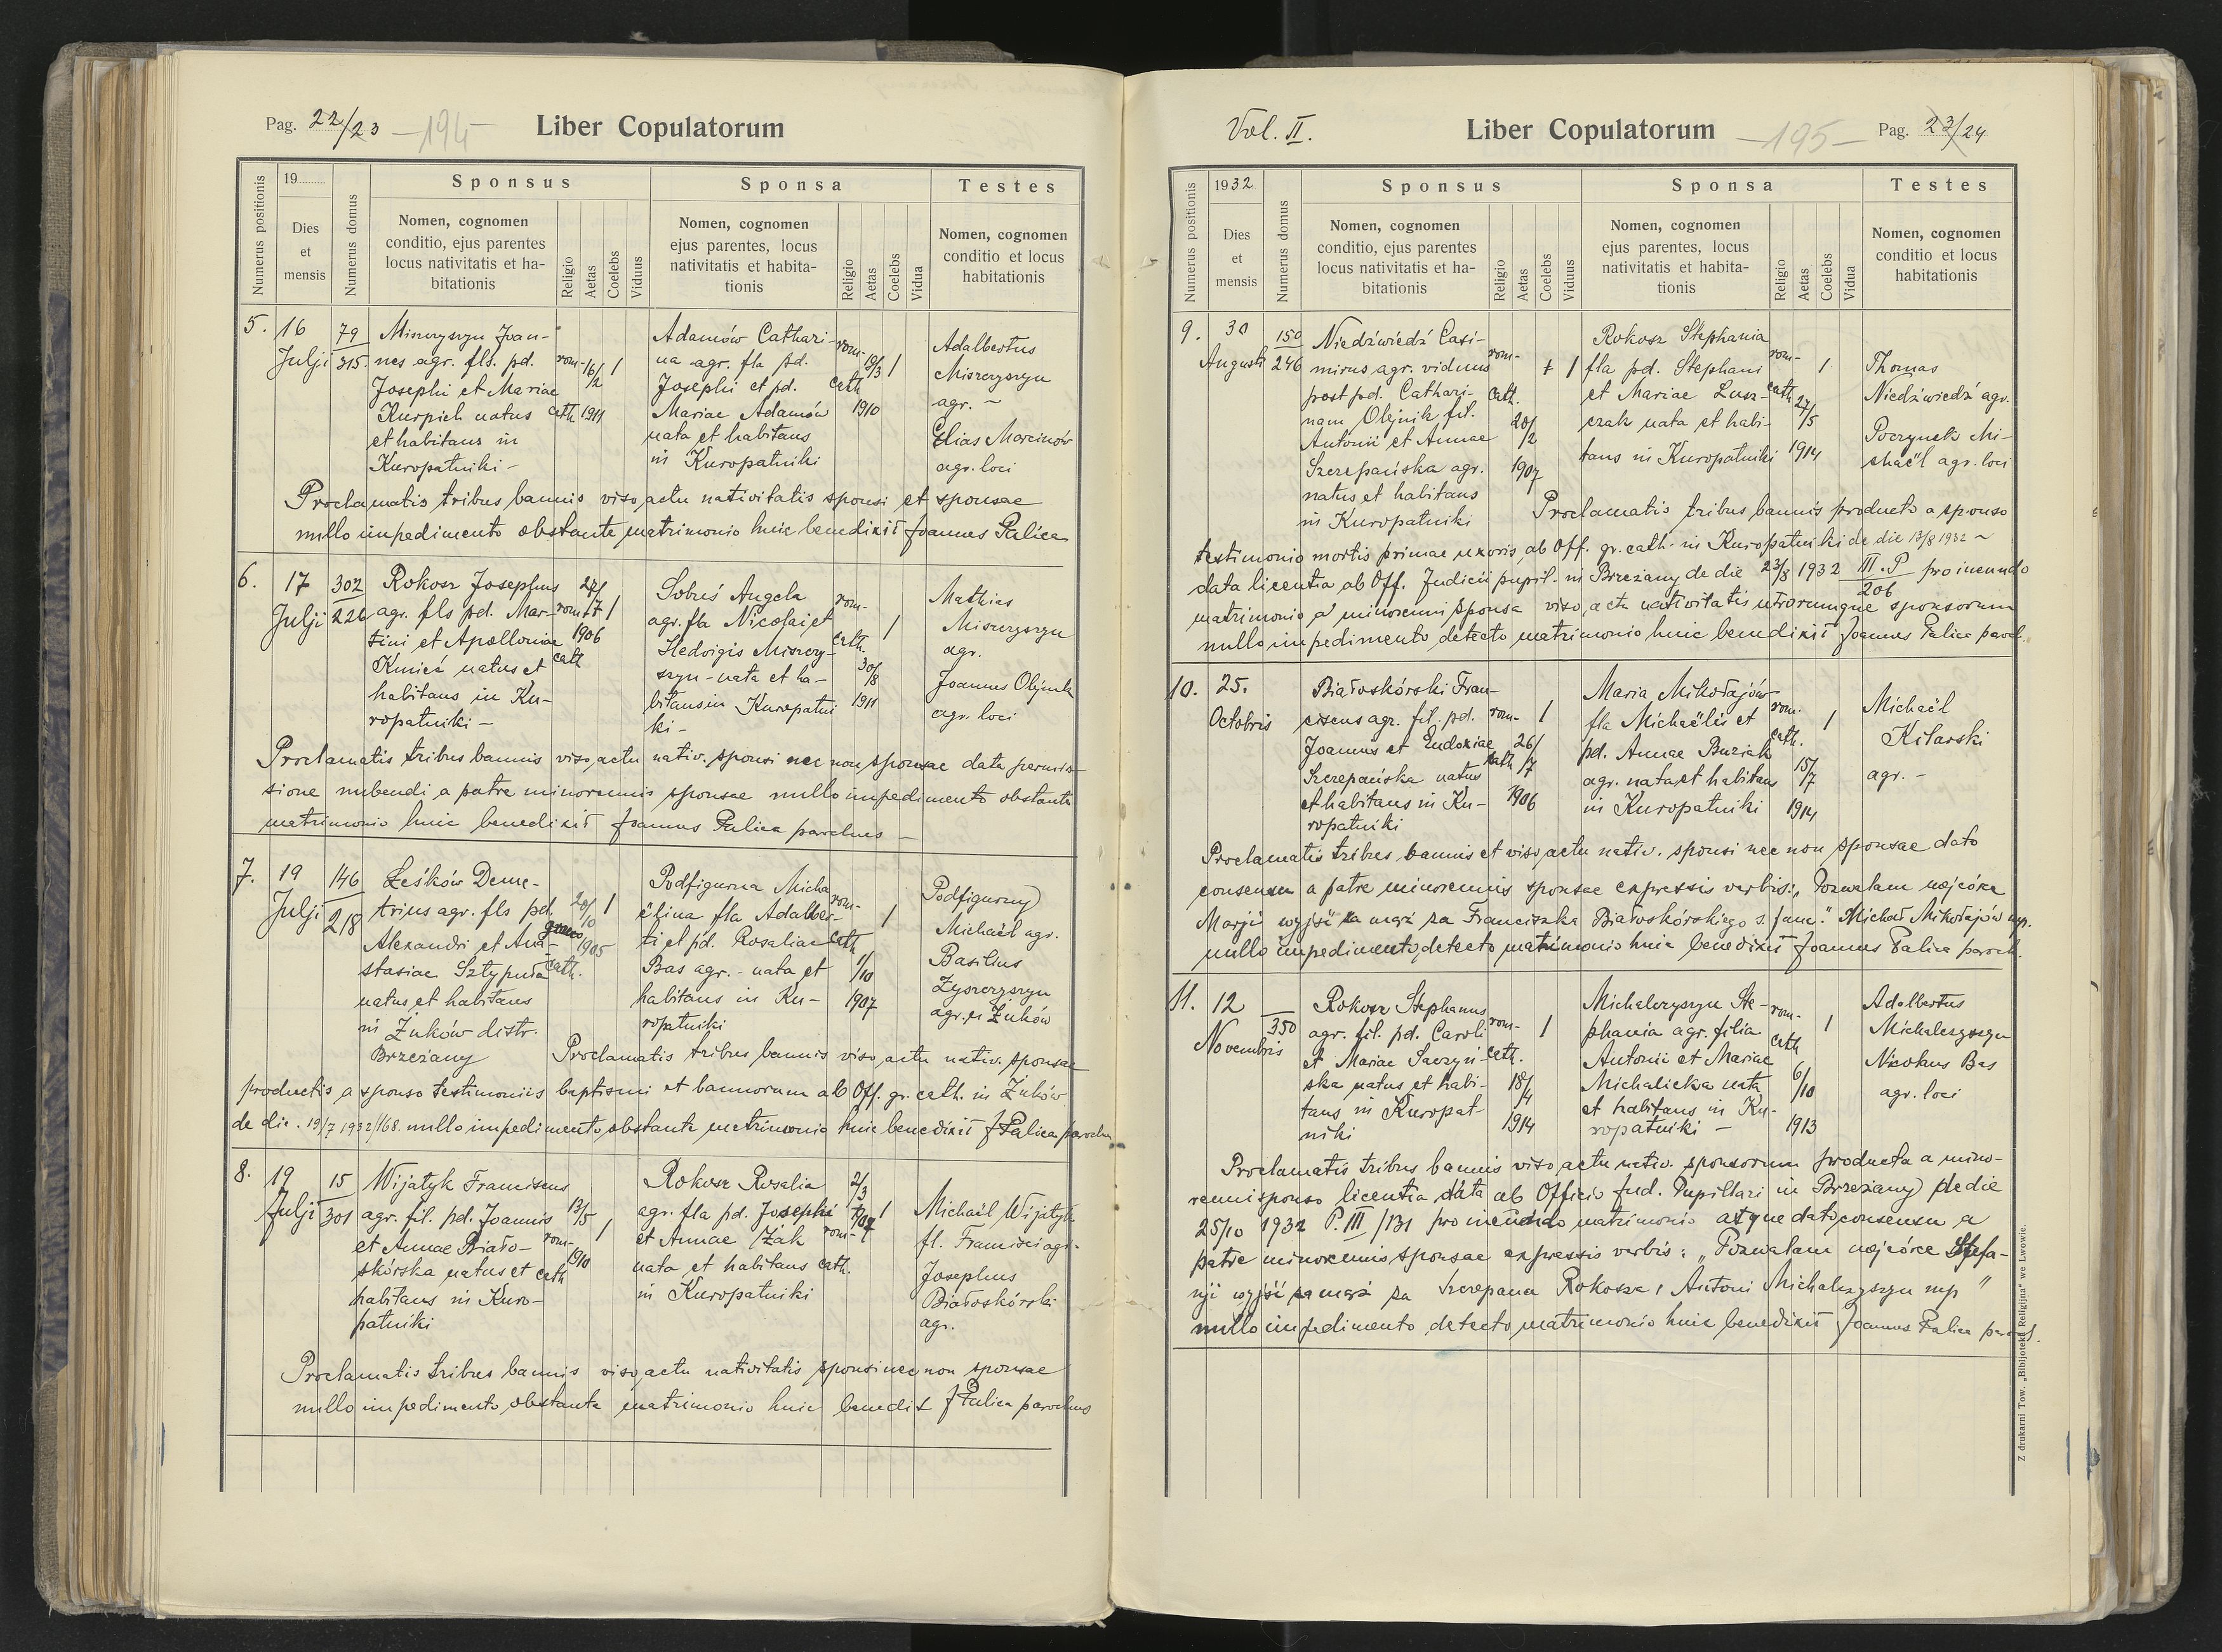 Pag. 22/23 —194— Liber Copulatorum
Numerus positionis
19
Dies
et
mensis
Numerus domus
Sponsus
Nomen, cognomen
conditio, ejus parentes
locus nativitatis et ha-
bitationis
Religio
Aetas
Coelebs
Viduus
Sponsa
Nomen, cognomen
ejus parentes, locus
nativitatis et habita-
tionis
Religio
Aetas
Coelebs
Vidua
Testes
Nomen, cognomen
conditio et locus
habitationis
5.
16
Julji
79
315
Miszczyszyn Joan-
nes agr. fls. pd.
Josephi et Mariae
Kurpich natus
et habitans in
Kuropatniki –
rom-
cath
16/2
1911
1
Adamów Cathari-
na agr. fla pd.
Josephi et pd.
Mariae Adamów
nata et habitans
in Kuropatniki
rom-
cath
19/3
1910
1
Adalbertus
Miszczyszyn
agr. –
Elias Marcinów
agr. loci
Proclamatis tribus bannis viso actu nativitatis sponsi et sponsae
nullo impedimento obstante matrimonio huic benedixit Joannes Palica
6.
17
Julji
302
226
Rokosz Josephus
agr. fls pd. Mar-
tini et Apolloniae
Kmieć natus et
habitans in Ku-
ropatniki –
rom
cath
1906
1
Sobuś Angela
agr. fla Nicolai et
Hedvigis Miszczy-
szyn – nata et ha-
bitans in Kuropatni
ki –
rom-
cath.
30/8
1911
1
Mathias
Miszczyszyn
agr.
Joannes Olejnik
agr. loci
Proclamatis tribus bannis viso actu nativ. sponsi nec non sponsae data permis-
sione nubendi a patre minorennis sponsae nullo impedimento obstante
matrimonio huic benedixit Joannes Palica parochus –
7.
19
Julji
146
218
Leśków Deme-
trius agr. fls pd.
Alexandri et Ana-
stasiae Sztypuła
natus et habitans
in Żuków distr.
Brzeżany
graeco
cath.
20/10
1905
1
Podfigurna Micha
ëlina fla Adalber-
ti et pd. Rosaliae
Bas agr. – nata et
habitans in Ku-
ropatniki
rom-
cath
1/10
1907
1
Podfigurny
Michaël agr.
Basilius
Zyszczyszyn
agr. Żuków
Proclamatis tribus bannis viso actu nativ. sponsae
productis a sponso testimoniis baptismi et bannorum ab Off. gr. cath. in Żuków
de die. 19/7 1932/168. nullo impedimento obstante matrimonio huic benedixit J Palica parochus
8.
19
Julji
15
301
Wijatyk Franciscus
agr. fil. pd. Joannis
et Annae Biało-
skórska natus et
habitans in Kuro-
patniki
13/5
1910
rom-
cath
1
Rokosz Rosalia
agr. fla pd. Josephi
et Annae Żak
nata et habitans
in Kuropatniki
2/3
rom-
cath.
1
Michaël Wijatyk
fl. Francisci agr.
Josephus
Białoskórski
agr.
Proclamatis tribus bannis viso actu nativitatis sponsi nec non sponsae
nullo impedimento obstante matrimonio huic benedixt J Palica parochus
Vol. II. Liber Copulatorum —195— Pag. 23/24
Numerus positionis
1932
Dies
et
mensis
Numerus domus
Sponsus
Nomen, cognomen
conditio, ejus parentes
locus nativitatis et ha-
bitationis
Religio
Aetas
Coelebs
Viduus
Sponsa
Nomen, cognomen
ejus parentes, locus
nativitatis et habita-
tionis
Religio
Aetas
Coelebs
Vidua
Testes
Nomen, cognomen
conditio et locus
habitationis
9.
30
Augusti
150
246
Niedźwiedź Casi-
mirus agr. viduus
post pd. Cathari-
nam Olejnik fil.
Antonii et Annae
Szczepańska agr.
natus et habitans
in Kuropatniki
rom-
cath.
20/2
1907
1
Rokosz Stephania
fla pd. Stephani
et Mariae Lusz-
czak nata et habi-
tans in Kuropatniki
rom-
cath
27/5
1914
1
Thomas
Niedźwiedź agr.
Poczynek Mi-
chaël agr. loci
Proclamatis tribus bannis producto a sponso
testimonio mortis primae uxoris, ab Off. gr. cath. in Kuropatniki de die 13/8 1932 –
data licentia ab Off. Judicii pupil. in Brzeżany de die 23/8 1932 III.P/206 pro ineundo
matrimonio a minorenni sponsa viso actu nativitatis utrorumque sponsorum
nullo impedimento detecto matrimonio huic benedixit Joannes Palica paroch.
10.
25.
Octobris
Białoskórski Fran-
ciscus agr. fil. pd.
Joannis et Eudoxiae
Szczepańska natus
et habitans in Ku-
ropatniki
rom-
cath
26/7
1906
1
Maria Mikołajów
fla Michaëlis et
pd. Annae Buziak
agr. nata et habitans
in Kuropatniki
rom.
cath.
15/7
1914
1
Michaël
Kilarski
agr. –
Proclamatis tribus bannis et viso actu nativ. sponsi nec non sponsae dato
consensu a patre minorennis sponsae expressis verbis: „Pozwalam mej córce
Marji wyjść za mąż za Franciszka Białoskórskiego s. Jana". Michał Mikołajów mp.
nullo impedimento detecto matrimonio huic benedixit Joannes Palica paroch.
11.
12
Novembris
350
Rokosz Stephanus
agr. fil. pd. Caroli
et Mariae Saczyń-
ska natus et habi-
tans in Kuropat-
niki
rom-
cath.
18/4
1914
1
Michalczyszyn Ste-
phania agr. filia
Antonii et Mariae
Michalicka nata
et habitans in Ku-
ropatniki –
rom-
cath
6/10
1913
1
Adalbertus
Michalczyszyn
Nicolaus Bas
agr. loci
Proclamatis tribus bannis viso actu nativ. sponsorum producta a mino-
renni sponso licentia data ab Officio Jud. Pupillari in Brzeżany de die
25/10 1932 P.III/131 pro ineundo matrimonio atque dato consensu a
patre minorennis sponsae expressis verbis: „Pozwalam mej córce Stefa-
nji wyjść za mąż za Szczepana Rokosza, Antoni Michalczyszyn mp"
nullo impedimento detecto matrimonio huic benedixit Joannes Palica paroch.
Z drukarni Tow. „Bibljoteka Religijna" we Lwowie.